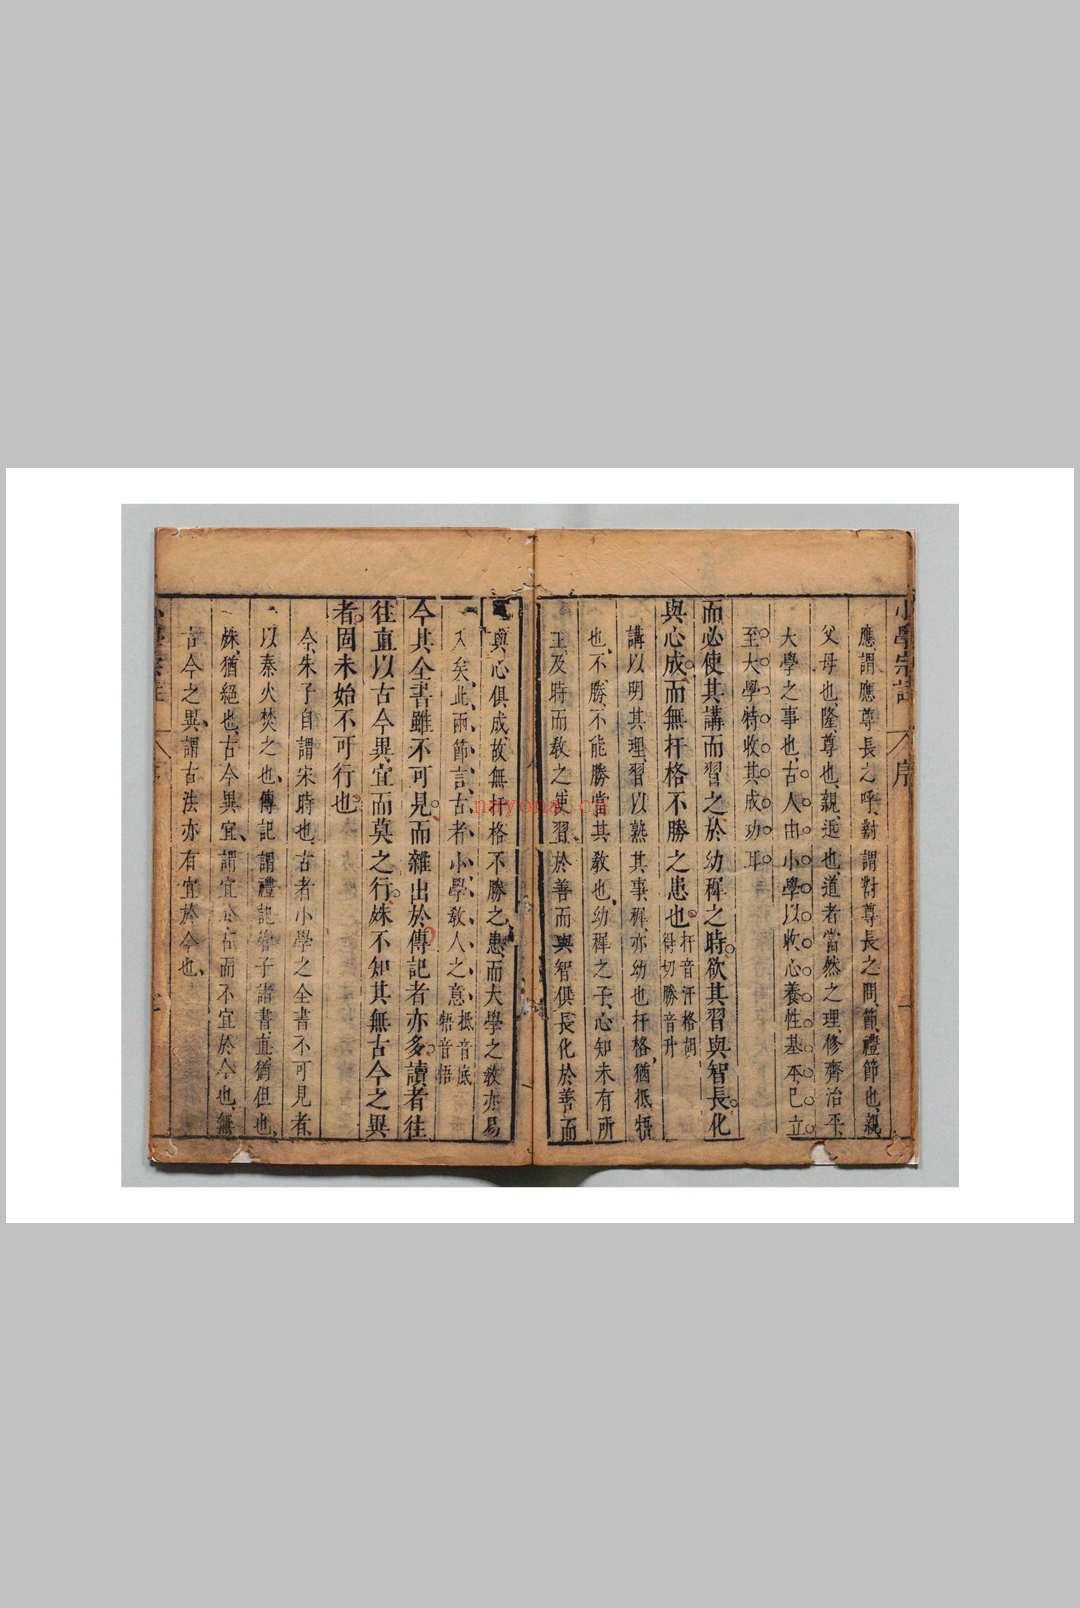 應謂應尊長之呼、對謂對尊長之問、節、禮節也、親、
父母也、隆、尊也、親、近也、道者當然之理、修齊治平、
大學之事也、古人由小學以收心養性、基本已立、
至大學特收其成功耳。
而必使其講而習之於幼穉之時。欲其習與智長。化
與心成。而無扞格不勝之患也。扞音汗格胡得切勝音升
講以明其理、習以熟其事、穉、亦幼也、扞格、猶抵牾
也、不勝、不能勝當其教也、幼穉之子、心知未有所
主、及時而教之、使習於善而與智俱長、化於善而
與心俱成、故無扞格不勝之患、而大學之教亦易
入矣、此兩節言古者小學教人之意、抵音底牾音悟
今其全書雖不可見。而雜出於傳記者亦多。讀者往
往直以古今異宜而莫之行。殊不知其無古今之異
者。固未始不可行也。
今、朱子自謂宋時也、古者小學之全書不可見者、
以秦火焚之也、傳記謂禮記管子諸書、直、猶但也、
殊、猶絕也、古今異宜、謂宜於古而不宜於今也、無
古今之異、謂古法亦有宜於今也、
序